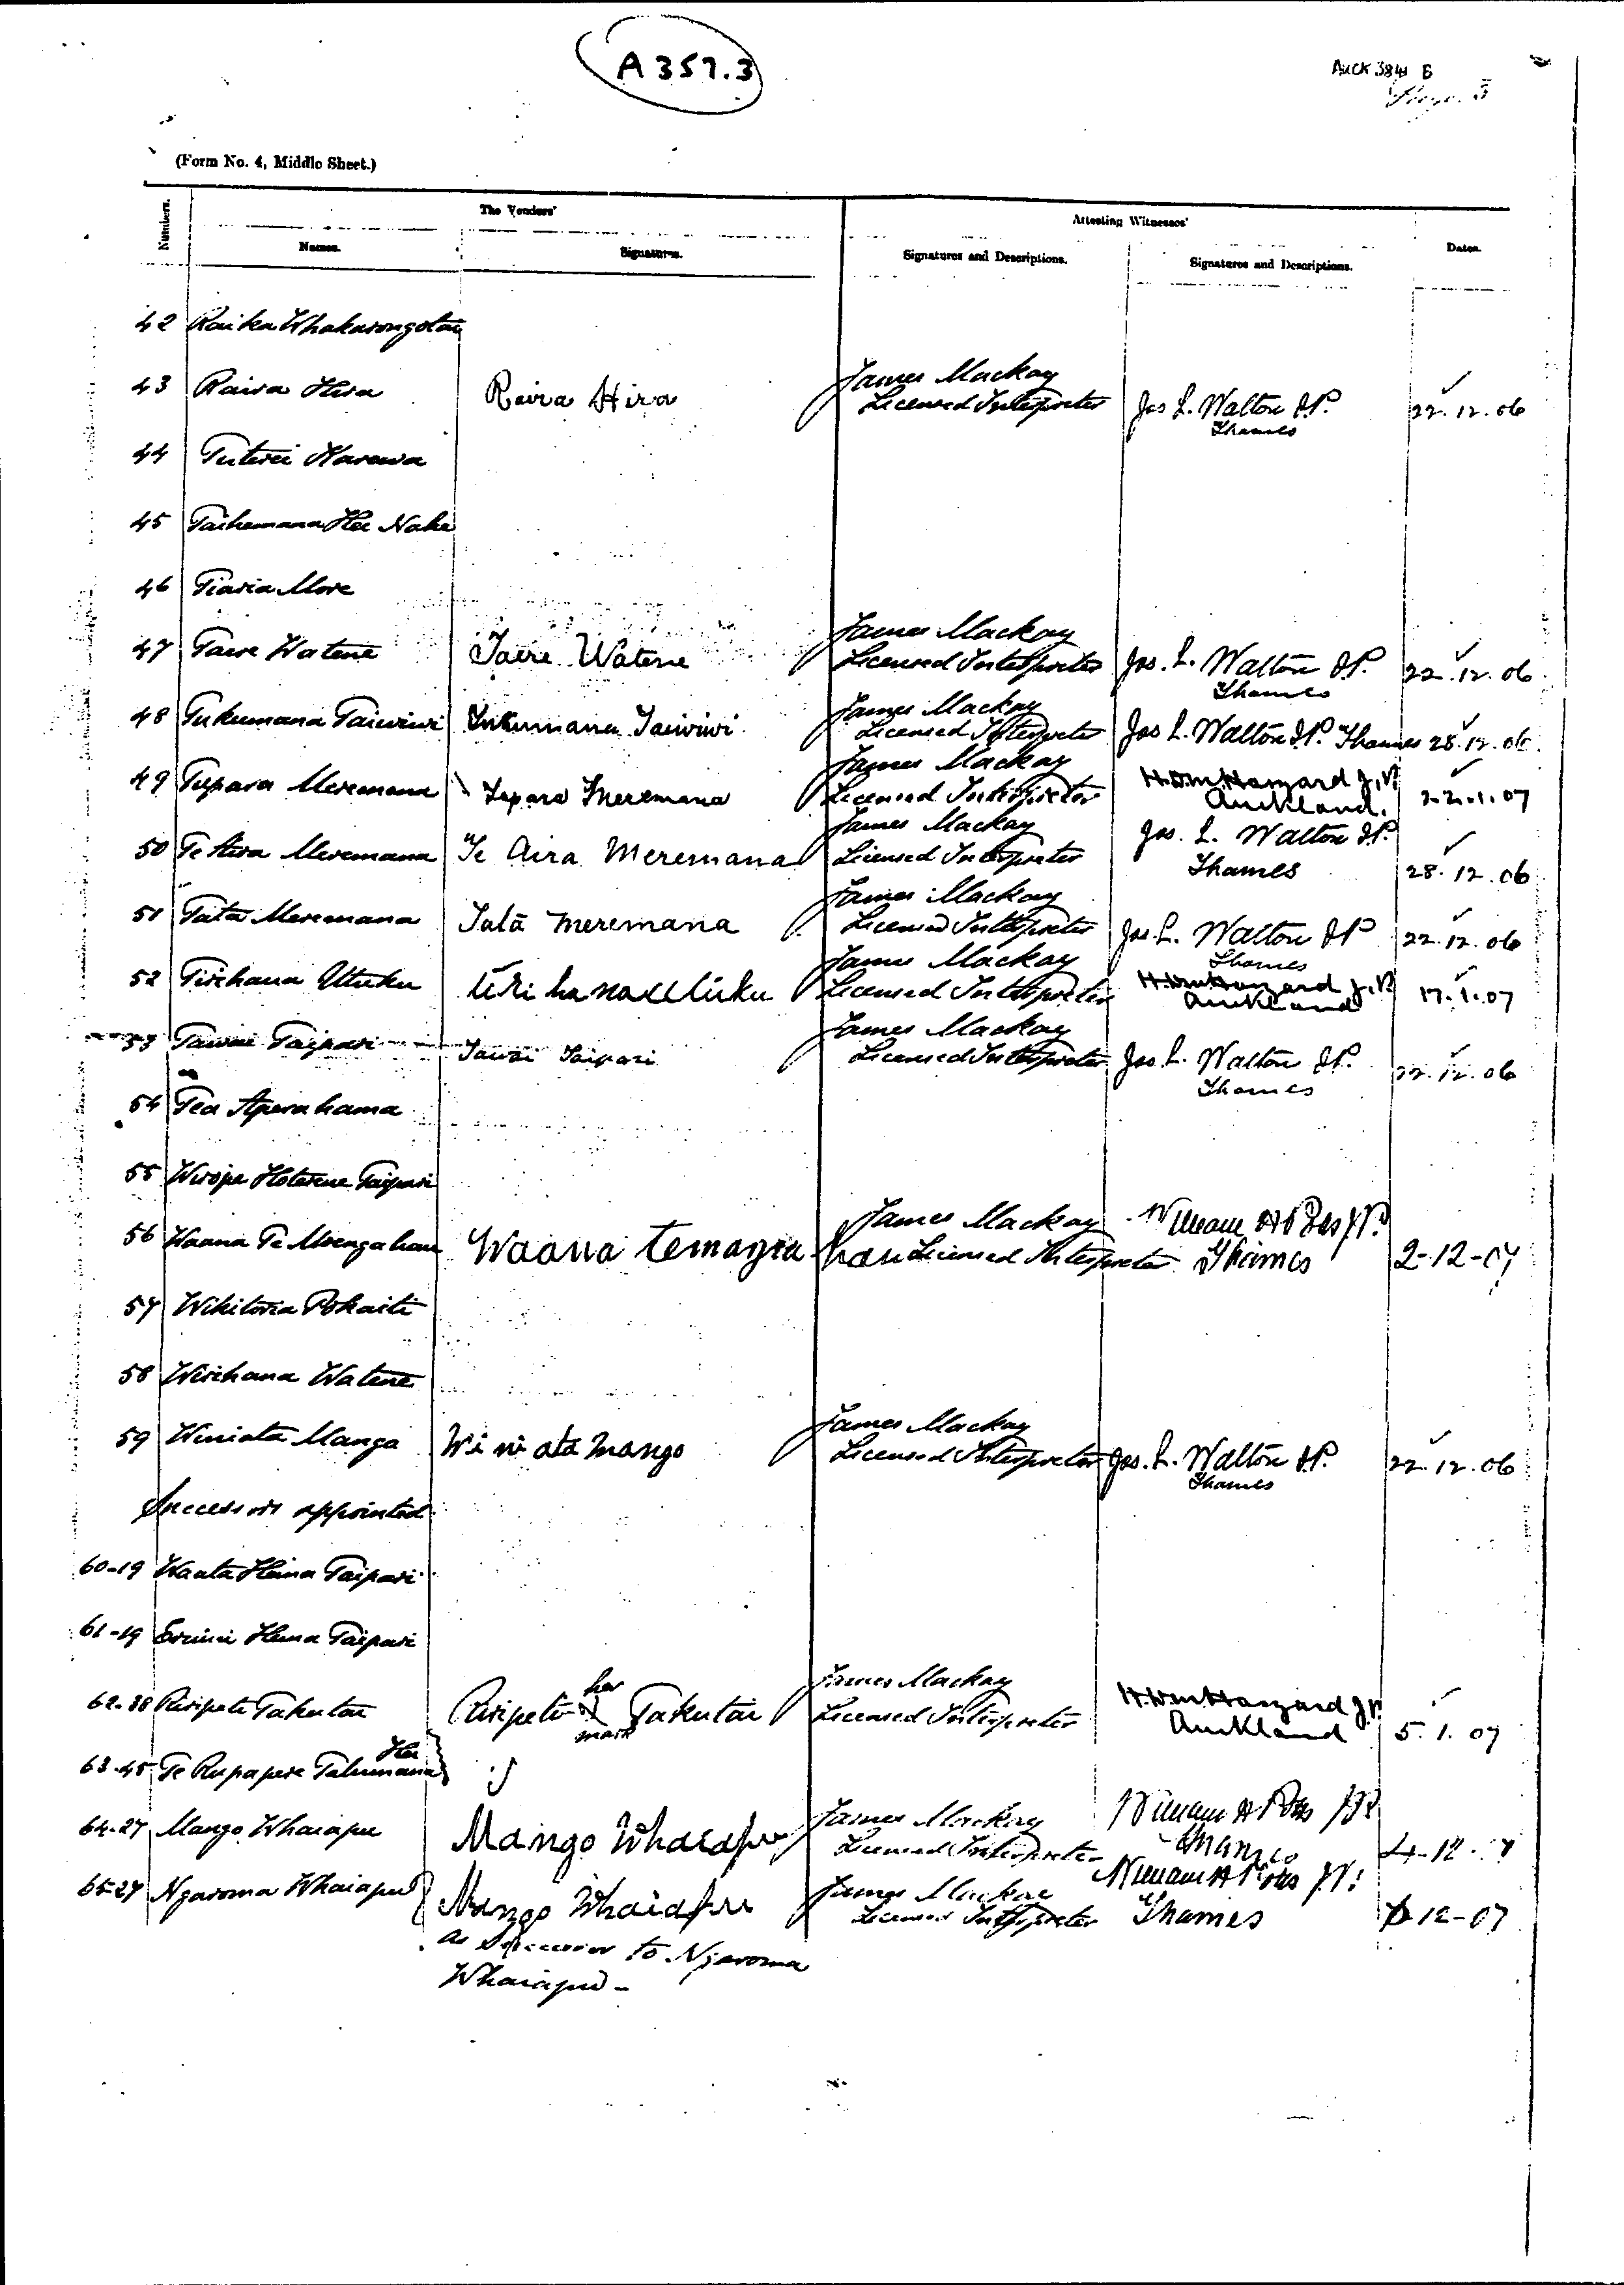 A 357.3
AUCK 3841 B
Page 3
(Form No. 4, Middle Sheet.)
Numbers.
The Vendors'
Attesting Witnesses'
Names.
Signatures.
Signatures and Descriptions.
Signatures and Descriptions.
Dates.
42 Raika Whakarongotai
43 Raira Hira Raira Hira James Mackay
Licensed Interpreter Jos L. Walton J.P. 22.12.06
Thames
44 Tuterei Karewa
45
46 Tiaria More
47 Taere Watene Taere Watene James Mackay
Licensed Interpreter Jos. L. Walton J.P. 22.12.06
Thames
48 Tukumana Taiwiwi Tukumana Taiwiwi James Mackay
Licensed Interpreter Jos L. Walton J.P. Thames 28.12.06
49 Tupara Meremana Tupara Meremana James Mackay
Licensed Interpreter J.P. 22.1.07
Auckland.
50 Te Aira Meremana Te Aira Meremana James Mackay
Licensed Interpreter Jos. L. Walton J.P.
Thames 28.12.06
51 Tata Meremana Tata Meremana James Mackay
Licensed Interpreter Jos. L. Walton J.P. 22.12.06
Thames
52 Tirihana Utuku James Mackay
Licensed Interpreter J.P. 17.1.07
Auckland
53 Tawai Taipari Tawai Taipari James Mackay
Licensed Interpreter Jos L. Walton J.P. 22.12.06
Thames
54 Tea Aperahama
55 Wiropa Hoterene Taipari
56 Waana Te James Mackay
Licensed Interpreter Thames 2-12-07
57 Wikitoria Pokaiti
58 Wirihana Watene
59 Winiata Manga Winiata Mango James Mackay
Licensed Interpreter Jos. L. Walton J.P. 22.12.06
Thames
Successors appointed
60-19 Waata Hema Taipari
61-19 Eruini Hema Taipari
62-38 Ruripeti Takutai Ruripeti her mark Takutai James Mackay
Licensed Interpreter J.P.
Auckland 5.1.07
63-45 Te Rupapere
64-27 Mango Whaiapu Mango Whaiapu James Mackay
Licensed Interpreter 4-12-
65-27 Ngaroma Whaiapu Mango Whaiapu James Mackay
Licensed Interpreter Thames 12-07
As Successor to Ngaroma
Whaiapu -